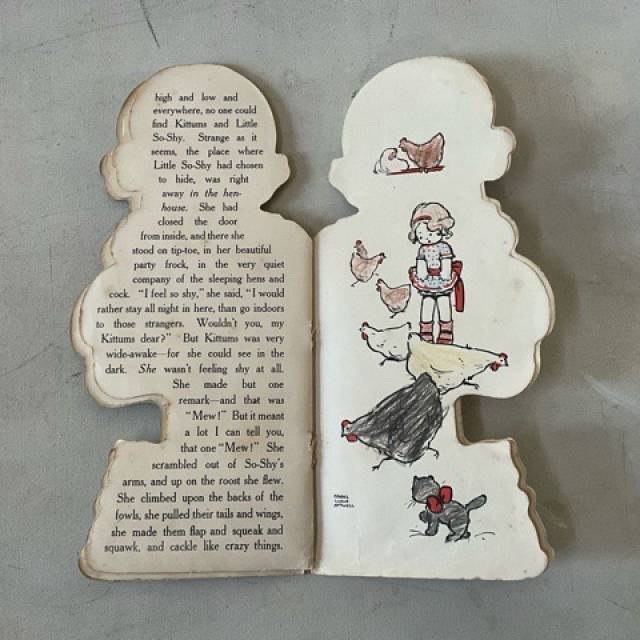 high and low and
everywhere, no one could
find Kittums and Little
So-Shy. Strange as it
seems, the place where
Little So-Shy had chosen
to hide, was right
away in the hen-
house. She had
closed the door
from inside, and there she
stood on tip-toe, in her beautiful
party frock, in the very quiet
company of the sleeping hens and
cock. "I feel so shy," she said, "I would
rather stay all night in here, than go indoors
to those strangers. Wouldn't you, my
Kittums dear?" But Kittums was very
wide-awake—for she could see in the
dark. She wasn't feeling shy at all.
She made but one
remark—and that was
"Mew!" But it meant
a lot I can tell you,
that one "Mew!" She
scrambled out of So-Shy's
arms, and up on the roost she flew.
She climbed upon the backs of the
fowls, she pulled their tails and wings,
she made them flap and squeak and
squawk, and cackle like crazy things.
MABEL
LUCIE
ATTWELL